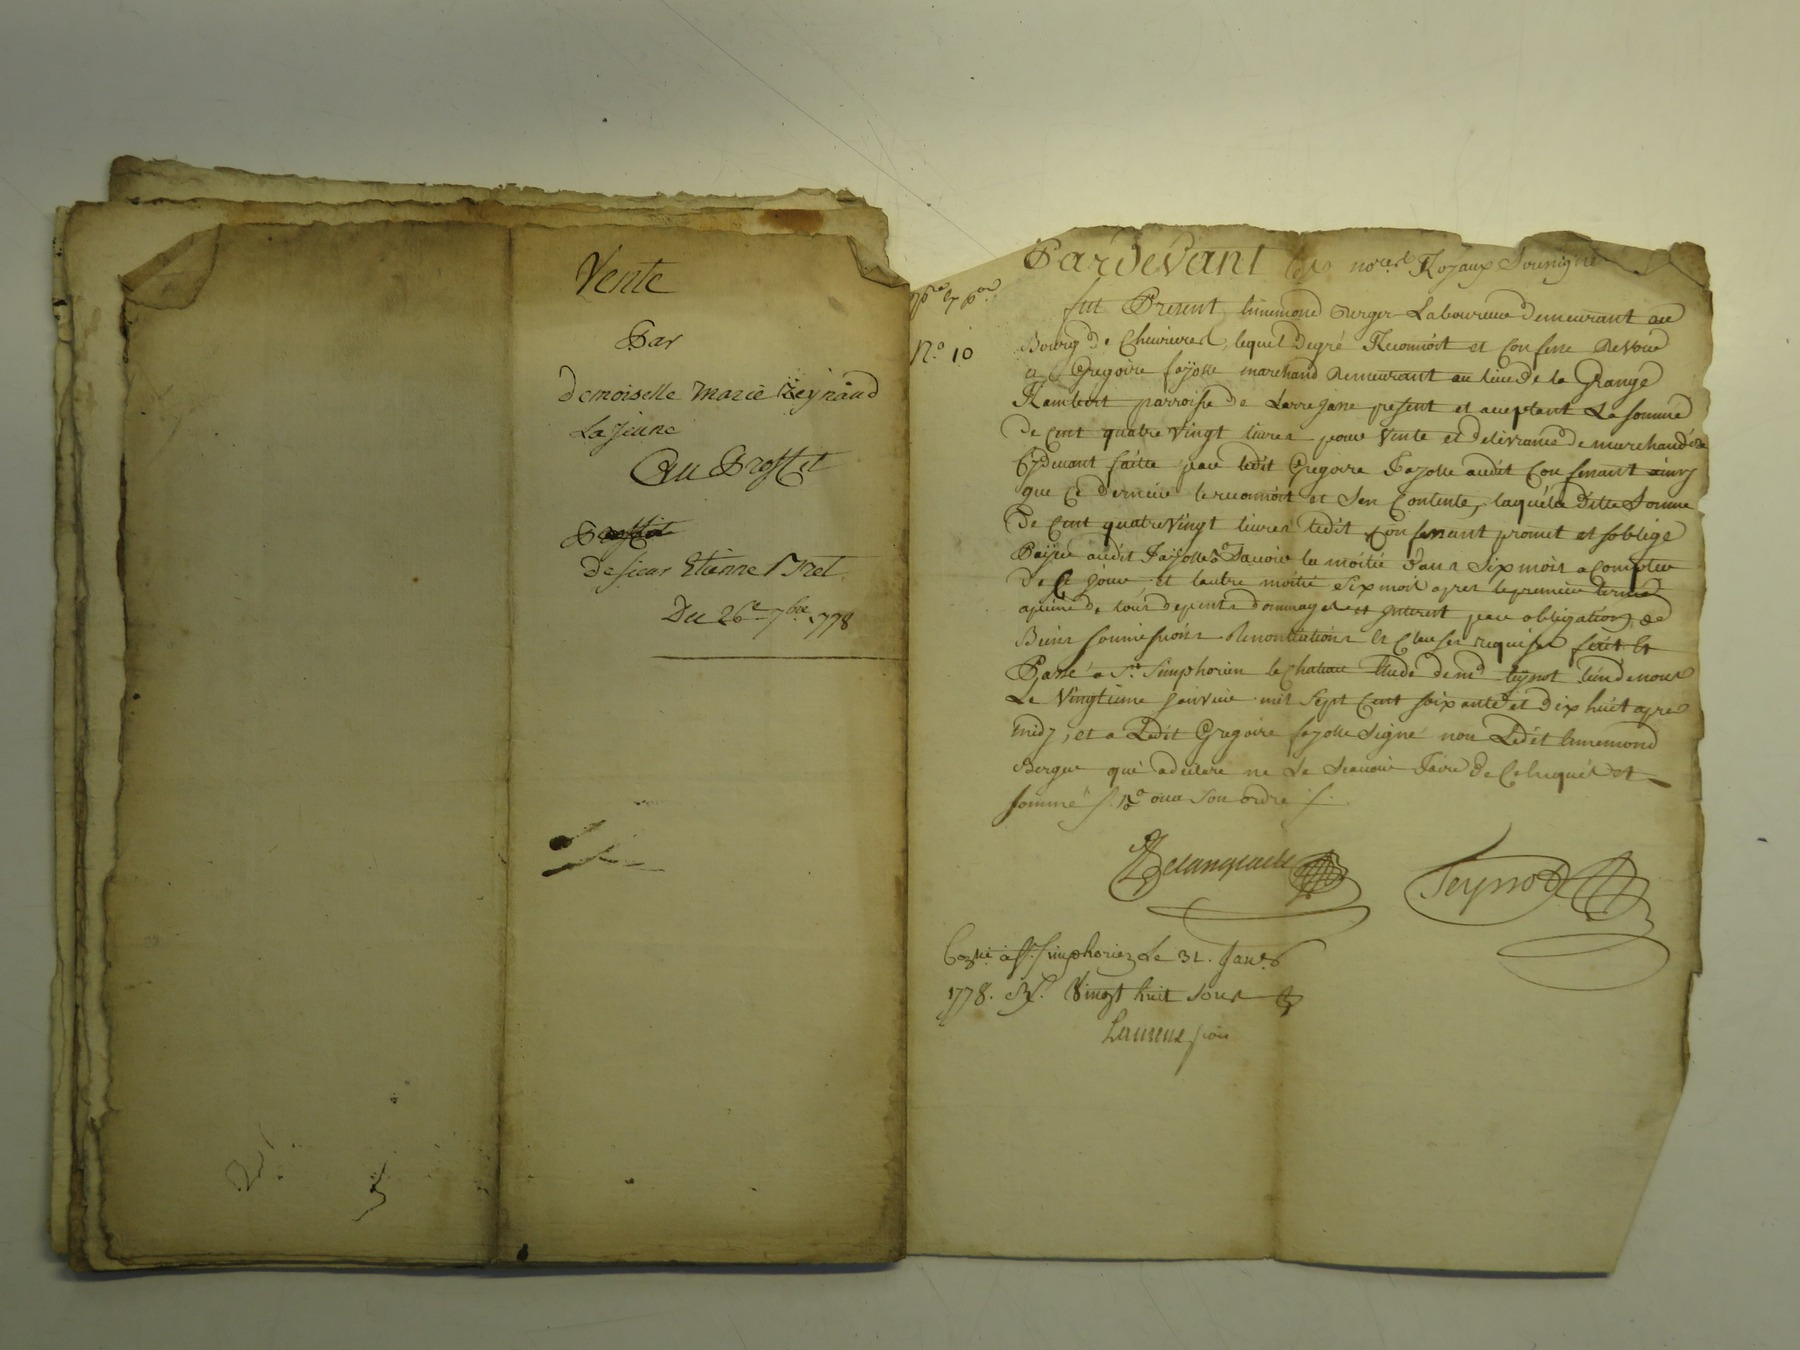 Vente
Par
demoiselle marie Reynaud
La jeune
Au Proffit
Proffit
De sieur Etienne Viret
Du 26e 7bre 1778
No 10
Pardevant les nores Royaux Soussigné
fut Present Ennemond Berger Laboureur demeurant au
Bourg de Chevrieres, lequel degré Reconnoit et Confesse Devoir
a Gregoire fayolle marchand Demeurant au lieu de la Grange
Rambert parroisse de Larrajasse present et aceptant La somme
de Cent quatre Vingt livres pour Vente et delivrance de marchandise
Cydevant faitte par ledit Gregoire Fayolle audit Confessant ainsy
que Ce dernier le reconnoit et Sen Contente, laquelle ditte Somme
de Cent quatre Vingt livres ledit Confessant promet et soblige
Payer audit Fayolle Savoir la moitié dans Six mois a Compter
de Ce jour et lautre moitié Six mois apres le premier terme
apeine de tous depents dommages et interest par obligation de
Biens soumissions Renontiations et Clauses requises fait et
Passé a St Simphorien le Chateau Etude de me Teynot lun de nous
Le Vingtieme Janvier mil Sept Cent soixante et dix huit apres
midy, et a Ledit Gregoire fayolle Signé non Ledit Ennemond
Berger qui a declaré ne Le Scavoir Faire de Ce Enquis et
sommé ou a son ordre
Teynot
Conlé a St Simphorien Le 31. Janer
1778. R. Vingt huit sous